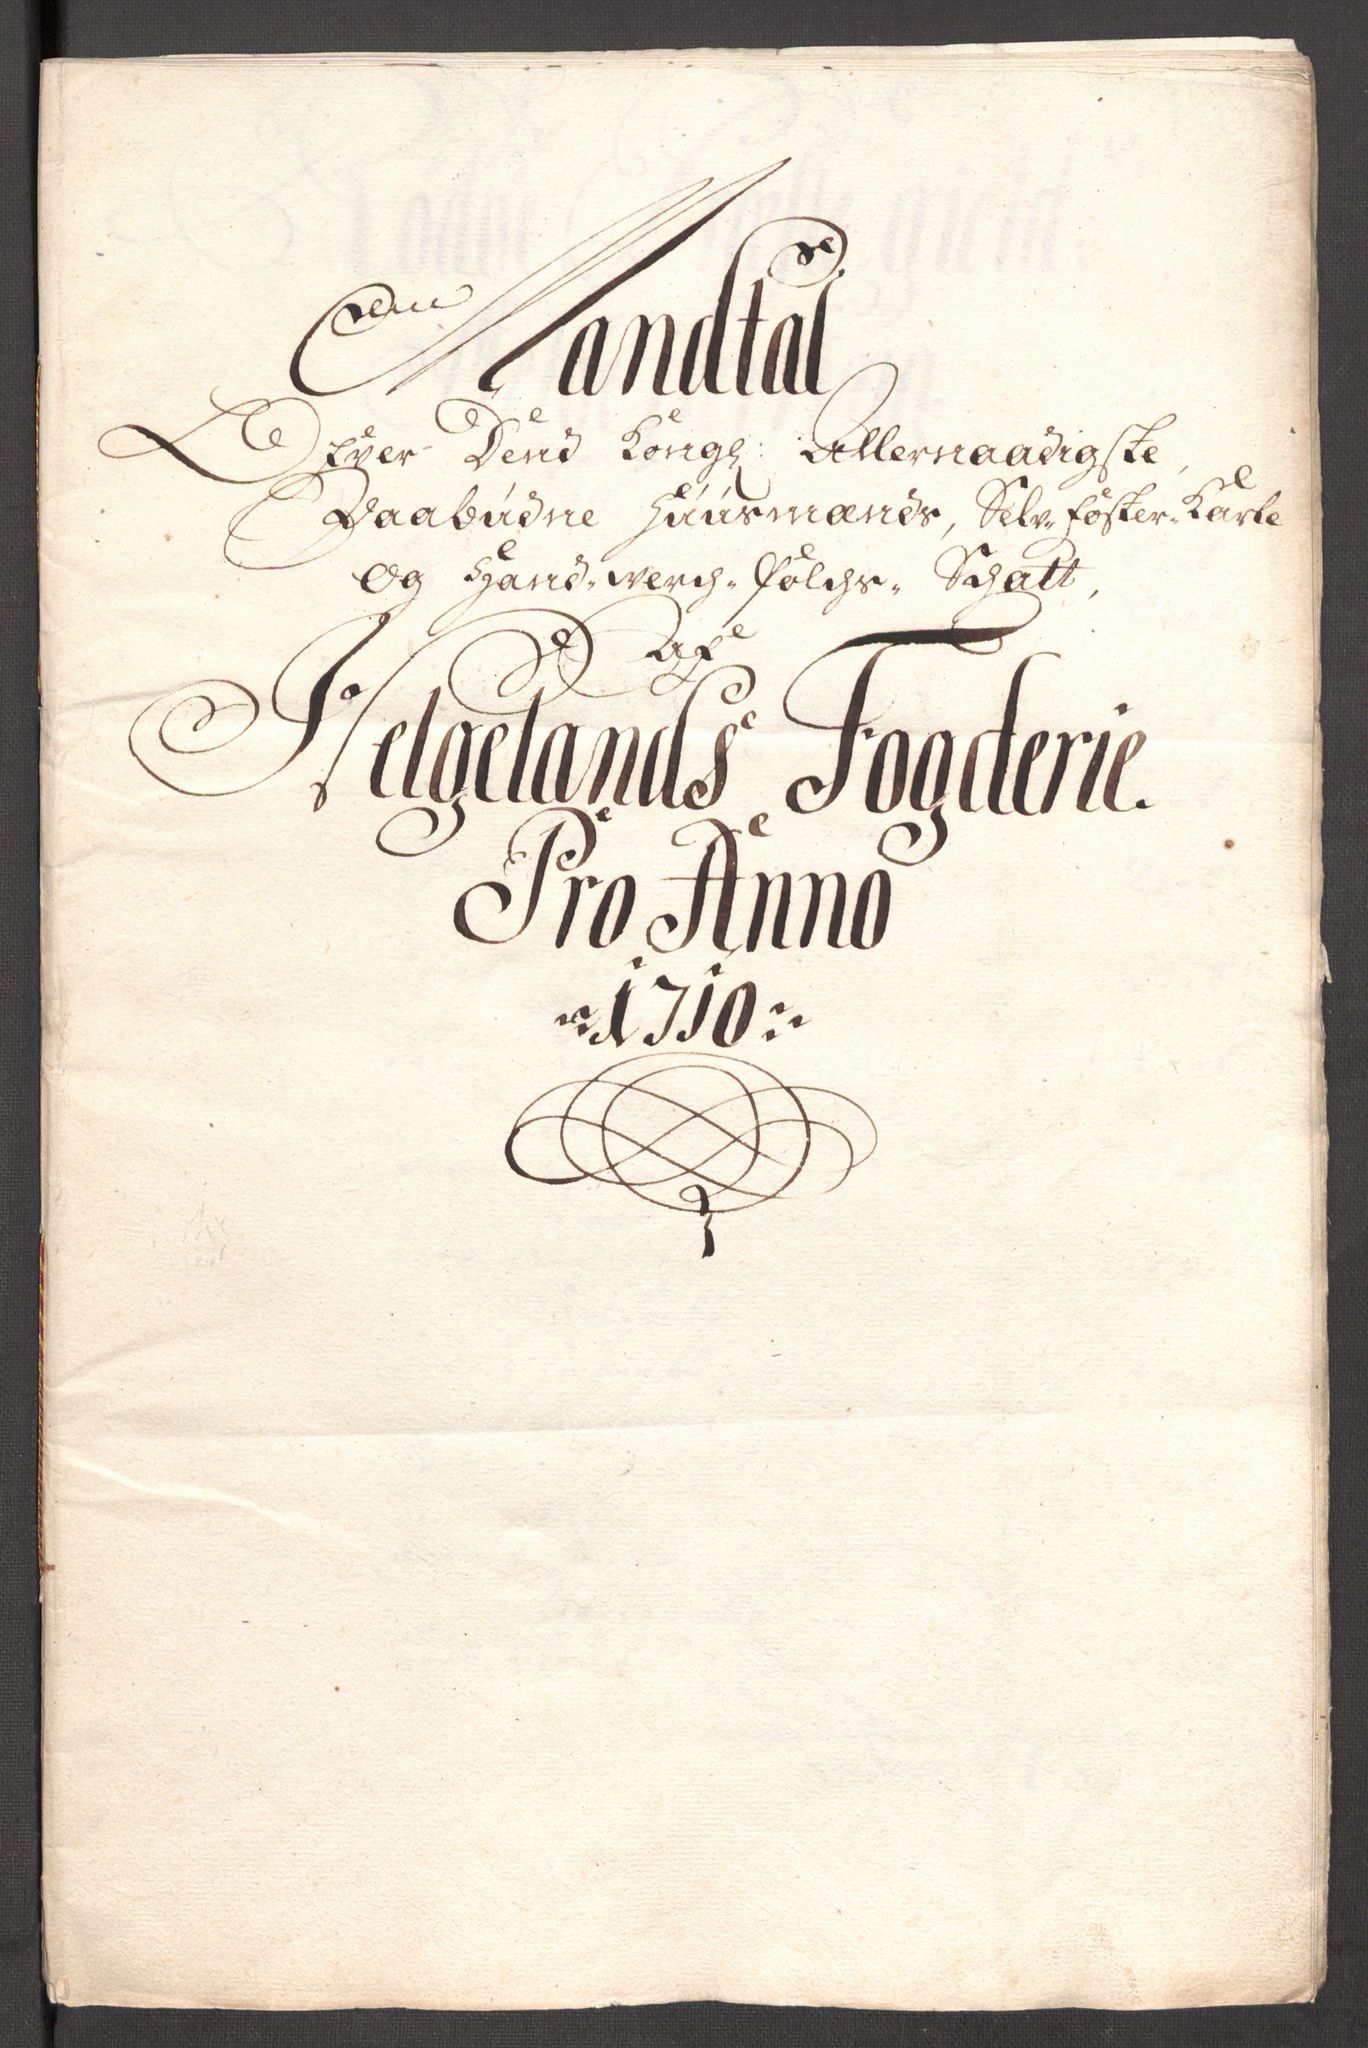 Mandtal
Ofver Dend Kongl: Allernaadigste,
Paabudne Huusmænds, Selv-foster-Karle
Og Hand-werch-folchs- Schatt,
af
Helgelands Fogderie.
Pro Anno
1710